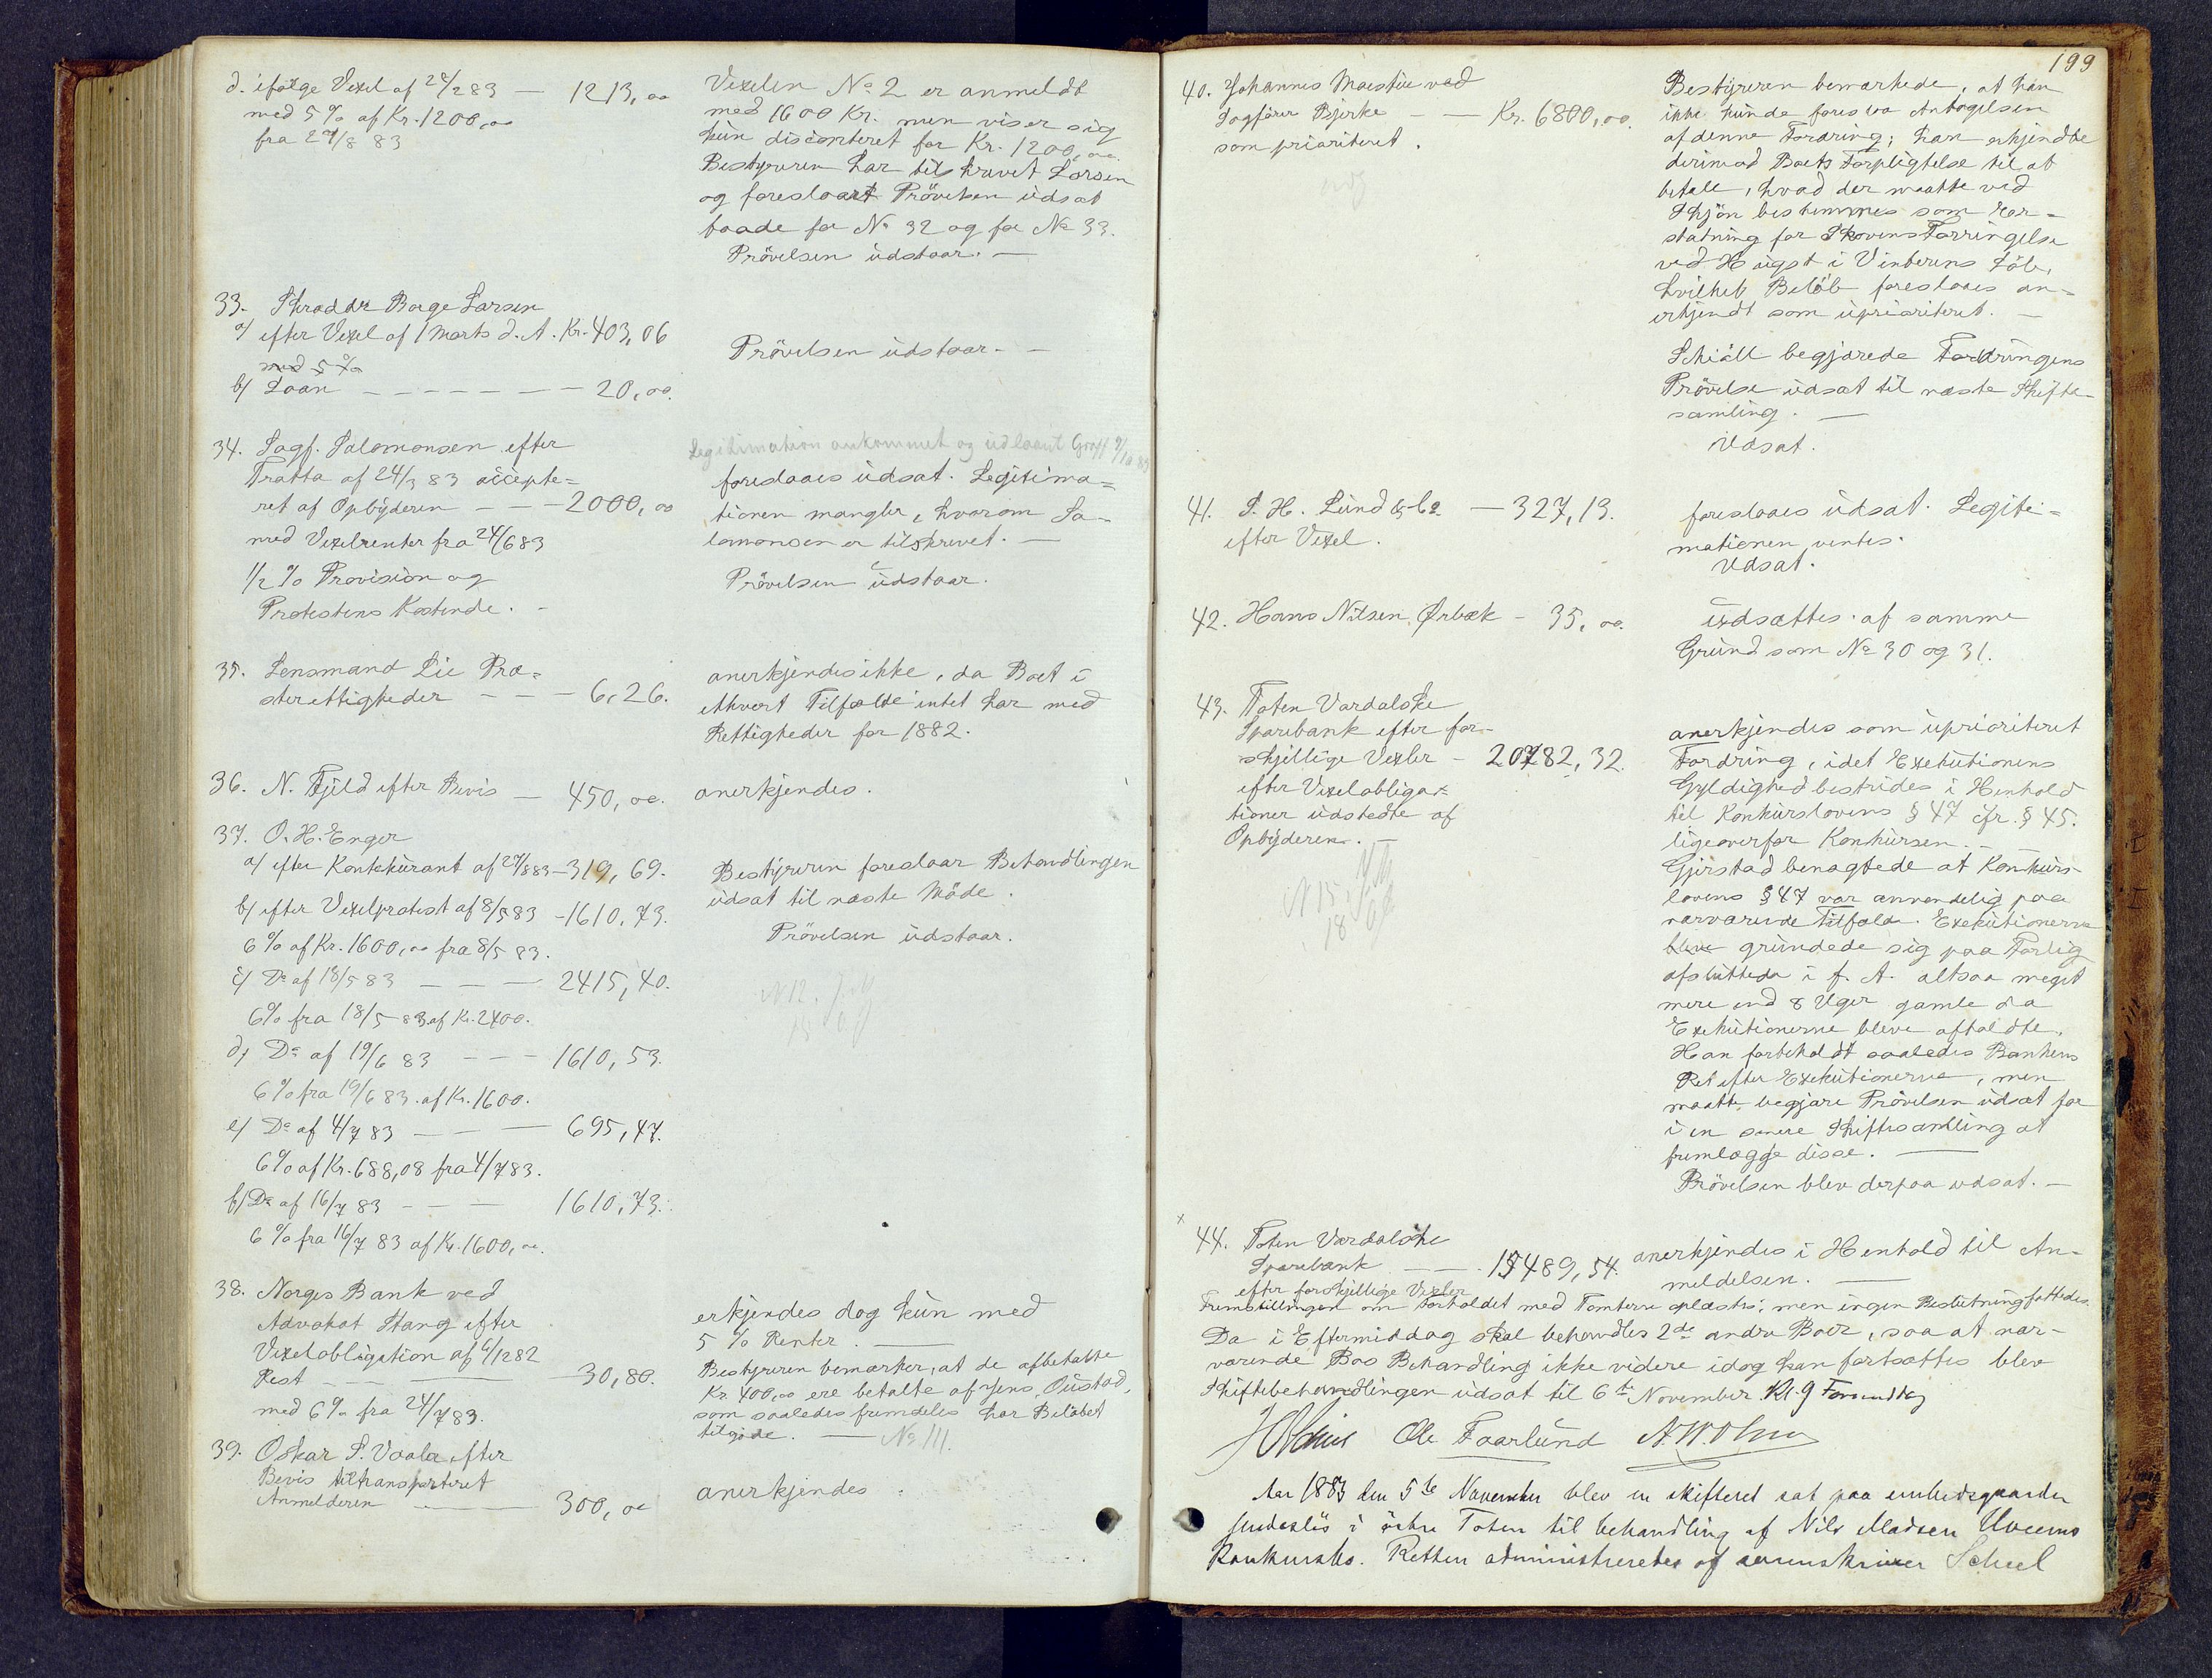 d. ifølge Vexel af 28/2 83 — 1213,00
med 5% af Kr. 1200,00
fra 28/8 83
Vexelen No 2 er anmeldt
med 1600 Kr. men viser sig
kun disconteret for Kr. 1200,00.
Bestyreren har tilskrevet Larsen
og foreslaaet Prövelsen udsat
baade for No 32 og for No 33.
Prövelsen udstaar. —
33. Skrædder Borge Larsen
a/ efter Vexel af 1 Marts d. A. Kr. 403,06
med 5%
b/ Laan — — — — — — 20,00.
Prövelsen udstaar. —
34. Sagf. Salomonsen efter
Tratta af 24/3 83 accepte=
ret af Opbyderen — — — 2000,00
med Vexelrenter fra 24/6 83
1/2 % Provision og
Protestens Kostende. —
Legitimation ankommet og udlaant
foreslaaes udsat. Legitima=
tionen mangler, hvorom Sa-
lomonsen er tilskrevet. —
Prövelsen udstaar.
35. Lensmand Lie Præ=
sterettigheder — — — 6,26.
anerkjendes ikke, da Boet i
ethvert Tilfælde intet har med
Rettigheder for 1882.
36. N. Fjeld efter Bevis — 450,00.
anerkjendes.
37. O. H. Enger
a/ efter Kontokurant af 27/8 83 — 319,69.
b/ efter Vexelprotest af 8/5 83 — 1610,73.
6% af Kr. 1600,00 fra 8/5 83.
c/ Do af 18/5 83 — — — 2415,40.
6% fra 18/5 83 af Kr. 2400.
d/ Do af 19/6 83 — — — 1610,53.
6% fra 19/6 83. af Kr. 1600.
e/ Do af 4/7 83 — — — 695,47.
6% af Kr. 688,08 fra 4/7 83.
f/ Do af 16/7 83 — — — 1610,73.
6% fra 16/7 83 af Kr. 1600,00.
Bestyreren foreslaar Behandlingen
udsat til næste Möde.
Prövelsen udstaar.
38. Norges Bank ved
Advokat Stang efter
Vexelobligation af 6/12 82
Rest — — — 30,80.
med 6% fra 24/7 83.
erkjendes dog kun med
5 % Renter. —
Bestyreren bemærker, at de afbetalte
Kr. 400,00 ere betalte af Jens Oustad,
som saaledes fremdeles har Belöbet
tilgode. — No 111.
39. Oskar P. Vaaler efter
Bevis tiltransporteret
Anmelderen — — 300,00
anerkjendes.
199
40. Johannes Mæstue ved
Sagförer Bjerke — — Kr. 6800,00.
som prioriteret.
Bestyreren bemærkede, at han
ikke kunde foreslaa Antagelsen
af denne Fordring; han erkjendte
derimod Boets Forpligtelse til at
betale, hvad der maatte ved
Skjön bestemmes som Er=
statning for Skovens Forringelse
ved Hugst i Vinterens Löb,
hvilket Belöb foreslaaes an=
erkjendt som uprioriteret. —
Schiöll begjærede Fordringens
Prövelse udsat til næste Skifte-
samling. —
Udsat.
41. P. H. Lund & Co — 327,13.
efter Vexel.
foreslaaes udsat. Legiti=
mationen ventes.
Udsat.
42. Hans Nilsen Ørbæk — 35,00.
udsættes af samme
Grund som No 30 og 31.
43. Toten Vardalske
Sparebank efter for-
skjellige Vexler — 20782,32.
efter Vexelobliga-
tioner udstedte af
Opbyderen. —
N 15.
18
anerkjendes som uprioriteret
Fordring, idet Exekutionens
Gyldighed bestrides i Henhold
til Konkurslovens § 47 cfr. § 45.
ligeoverfor Konkursen. —
Gjerstad benægtede at Konkurs-
lovens § 47 var anvendelig paa
nærværende Tilfælde. Exekutionerne
bleve grundede sig paa Forlig
afsluttede i f. A. altsaa meget
mere end 8 Uger gamle da
Exekutionerne bleve afholdte.
Han forbeholdt saaledes Bankens
Ret efter Exekutionerne, men
maatte begjære Prövelsen udsat for
i en senere Skiftesamling at
fremlægge disse. —
Prövelsen blev derpaa udsat. —
x
44. Toten Vardalske
Sparebank — — 15489,54.
efter forskjellige Vexler
anerkjendes i Henhold til An-
meldelsen. —
Fremstillingen om Forholdet med Tomterne oplæstes; men ingen Beslutning fattedes.
Da i Eftermiddag skal behandles 2de andre Boer, saa at nær-
værende Bos Behandling ikke videre idag kan fortsættes blev
Skiftebehandlingen udsat til 6te November Kl. 9 Formiddag
Ole Faarlund
Aar 1883 den 5te November blev en skifteret sat paa embedsgaarden
i östre Toten til behandling af Nils Madsen Hveems
Konkursbo. Retten administreredes af sorenskriver Scheel